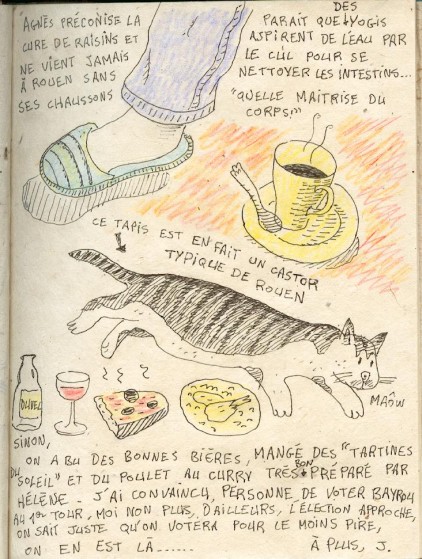 AGNÈS PRÉCONISE LA
CURE DE RAISINS ET
NE VIENT JAMAIS
À ROUEN SANS
SES CHAUSSONS
PARAIT QUE DES YOGIS
ASPIRENT DE L'EAU PAR
LE CUL POUR SE
NETTOYER LES INTESTINS...
"QUELLE MAITRISE DU
CORPS!"
CE TAPIS EST EN FAIT UN CASTOR
TYPIQUE DE ROUEN
MAÔW
DUVEL
SIMON,
ON A BU DES BONNES BIÈRES, MANGÉ DES "TARTINES
DU SOLEIL" ET DU POULET AU CURRY TRÈS BON PRÉPARÉ PAR
HÉLÈNE - J'AI CONVAINCU, PERSONNE DE VOTER BAYROU
AU 1er TOUR, MOI NON PLUS, D'AILLEURS, L'ÉLECTION APPROCHE,
ON SAIT JUSTE QU'ON VOTERA POUR LE MOINS PIRE,
ON EN EST LÀ...... À PLUS, J.